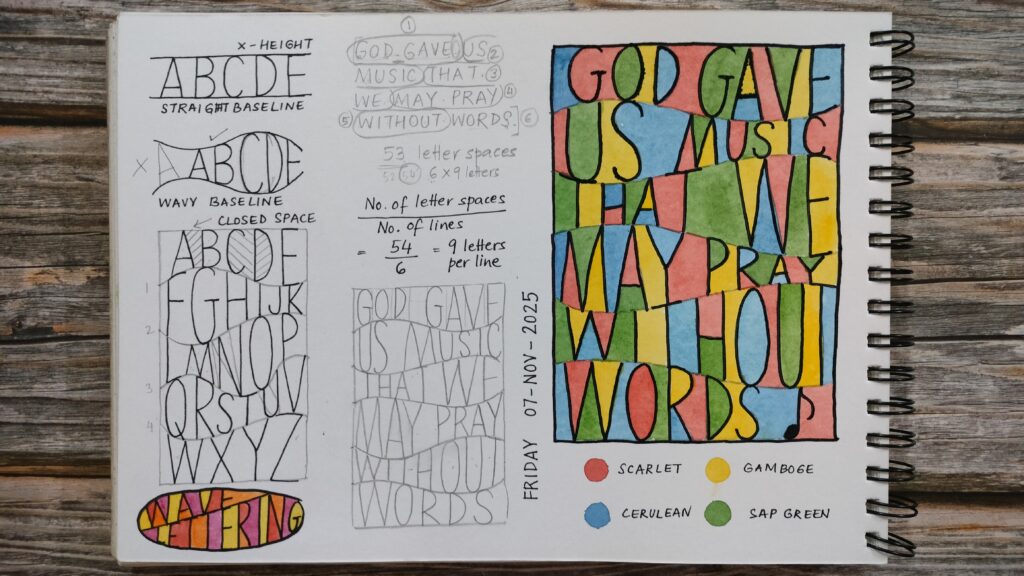 X-HEIGHT
ABCDE
STRAIGHT BASELINE
X ABCDE
WAVY BASELINE
CLOSED SPACE
ABCDE
1
FGHIJK
2
MNOP
3
QRSTUV
4
WXYZ
WAVE
LETTERING
1
GOD GAVE US 2
MUSIC THAT 3
WE MAY PRAY 4
5 WITHOUT WORDS.] 6
53 letter spaces
54 6 x 9 letters
No. of letter spaces
No. of lines
= 54 = 9 letters
6 per line
GOD GAVE
US MUSIC
THAT WE
MAY PRAY
WITHOUT
WORDS
FRIDAY 07-NOV-2025
GOD GAVE
US MUSIC
THAT WE
MAY PRAY
WITHOUT
WORDS
SCARLET
GAMBOGE
CERULEAN
SAP GREEN